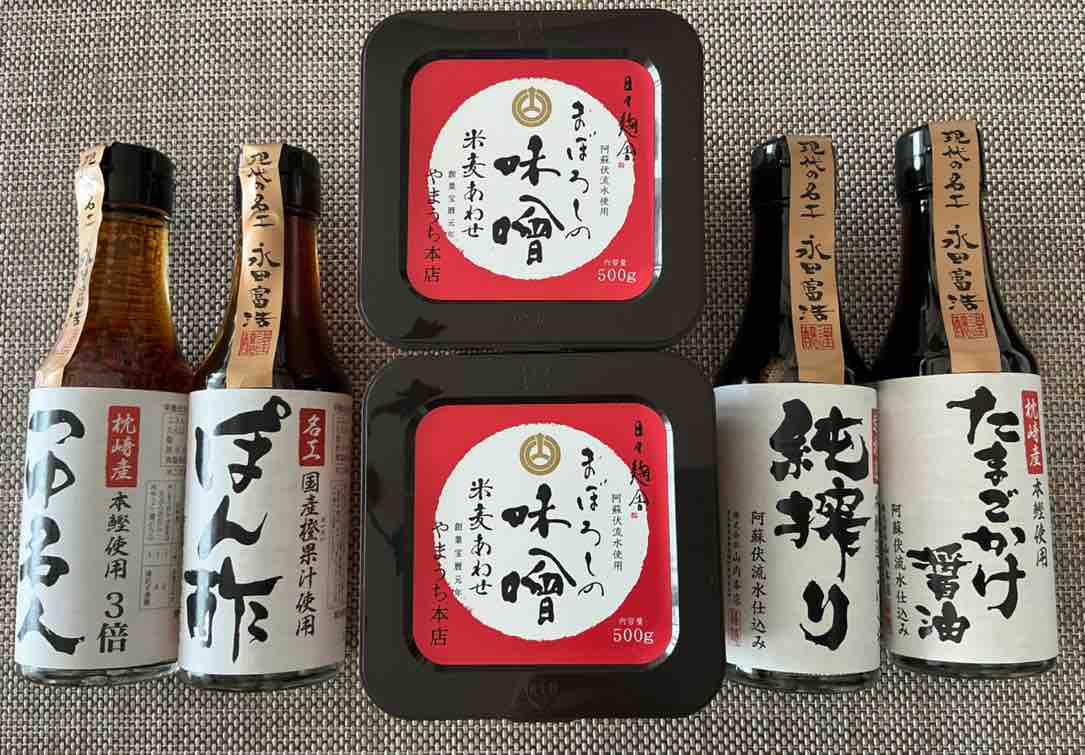 名工
つゆ名人
枕崎産
本鰹使用
3倍
現代の名工 永田富浩
ぽん酢
名工
国産橙果汁使用
日々麹舎
阿蘇伏流水使用
まぼろしの
味噌
米麦あわせ
創業宝暦元年
やまうち本店
内容量
500g
日々麹舎
阿蘇伏流水使用
まぼろしの
味噌
米麦あわせ
創業宝暦元年
やまうち本店
内容量
500g
現代の名工 永田富浩
純搾り
阿蘇伏流水仕込み
株式会社山内本店
現代の名工 永田富浩
枕崎産
本鰹使用
たまごかけ
醤油
阿蘇伏流水仕込み